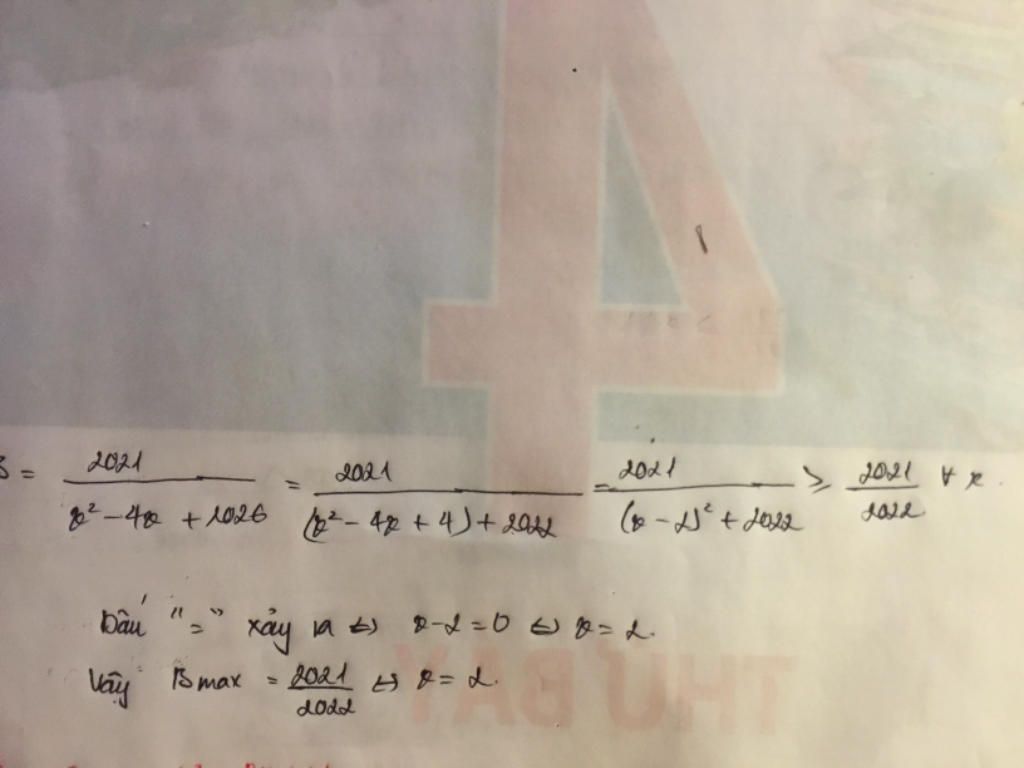 4
B = 2021 / (x² - 4x + 2026) = 2021 / ((x² - 4x + 4) + 2022) = 2021 / ((x - 2)² + 2022) ≥ 2021 / 2022 ∀ x.
Dấu "=" xảy ra ⇔ x - 2 = 0 ⇔ x = 2.
Vậy Bmax = 2021 / 2022 ⇔ x = 2.
THỨ BẢY